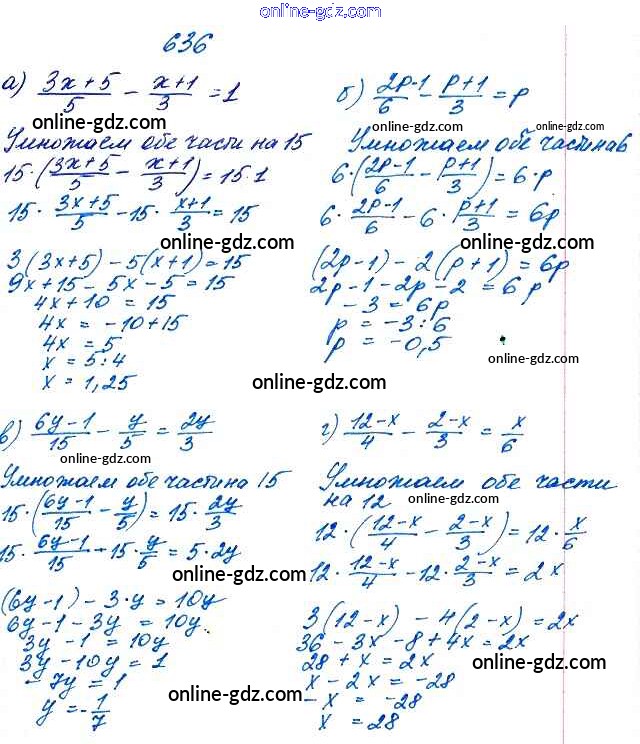 online-gdz.com
636
а) (3x+5)/5 − (x+1)/3 = 1
online-gdz.com
Умножаем обе части на 15
15·((3x+5)/5 − (x+1)/3) = 15·1
online-gdz.com
15·(3x+5)/5 − 15·(x+1)/3 = 15
online-gdz.com
3(3x+5) − 5(x+1) = 15
9x+15 − 5x − 5 = 15
4x+10 = 15
4x = −10+15
4x = 5
x = 5:4
x = 1,25
online-gdz.com
б) (2p-1)/6 − (p+1)/3 = p
online-gdz.com
online-gdz.com
Умножаем обе части на 6
6·((2p−1)/6 − (p+1)/3) = 6·p
6·(2p-1)/6 − 6·(p+1)/3 = 6p
online-gdz.com
(2p−1) − 2(p+1) = 6p
2p−1−2p−2 = 6p
−3 = 6p
p = −3:6
p = −0,5
online-gdz.com
в) (6y−1)/15 − y/5 = 2y/3
online-gdz.com
Умножаем обе части на 15
15·((6y−1)/15 − y/5) = 15·2y/3
15·(6y−1)/15 − 15·y/5 = 5·2y
online-gdz.com
(6y−1) − 3·y = 10y
6y−1−3y = 10y
3y −1 = 10y
3y−10y = 1
−7y = 1
online-gdz.com
y = −1/7
г) (12−x)/4 − (2−x)/3 = x/6
online-gdz.com
Умножаем обе части
на 12
online-gdz.com
12·((12−x)/4 − (2−x)/3) = 12·x/6
12·(12−x)/4 − 12·(2−x)/3 = 2x
online-gdz.com
3(12−x) − 4(2−x) = 2x
36 − 3x − 8 + 4x = 2x
28 + x = 2x
online-gdz.com
x − 2x = −28
−x = −28
x = 28
online-gdz.com